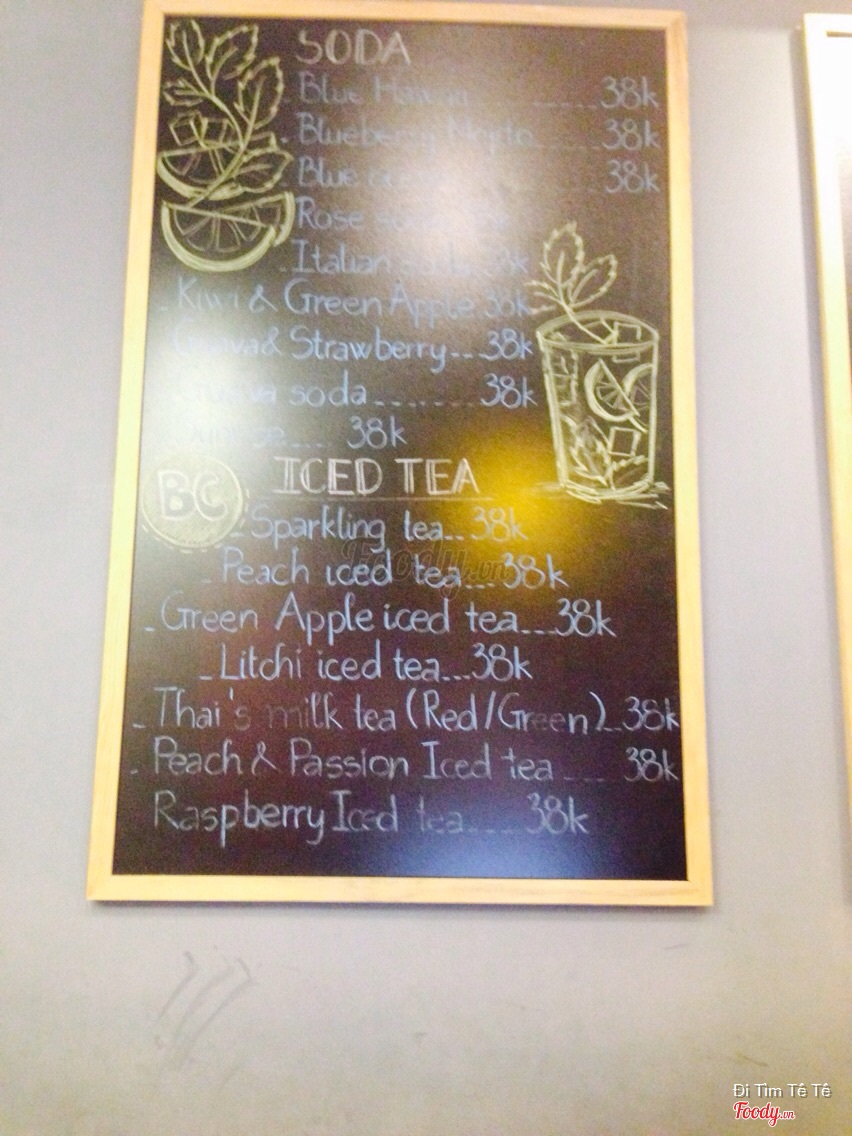 SODA
Blue Hawaii ......38k
Blueberry Mojito......38k
Blue 38k
Rose soda
Italian soda 38k
- Kiwi & Green Apple 38k
Guava & Strawberry...38k
soda........38k
.... 38k
BC
ICED TEA
- Sparkling tea..38k
- Peach iced tea...38k
- Green Apple iced tea...38k
- Litchi iced tea...38k
- Thai's milk tea (Red/Green)..38k
- Peach & Passion Iced tea ... 38k
Raspberry Iced tea....38k
Foody.vn
Đi Tìm Tê Tê
Foody.vn